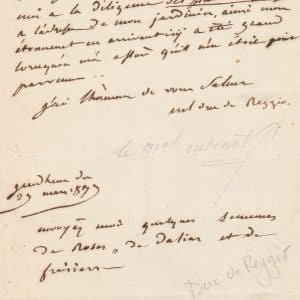 mis à la diligence des
à l'adresse de mon jardinier, ainsi mon
étonnement en arrivant ici a été grand
lorsqu'on m'a assuré qu'il n'en était point
parvenu ..
j'ai l'honneur de vous saluer
mal duc de Reggio.
le mal oudinot
29 mars
envoyez moi quelques semences
de Roses, de dalias et de
fraisiers
Duc de Reggio